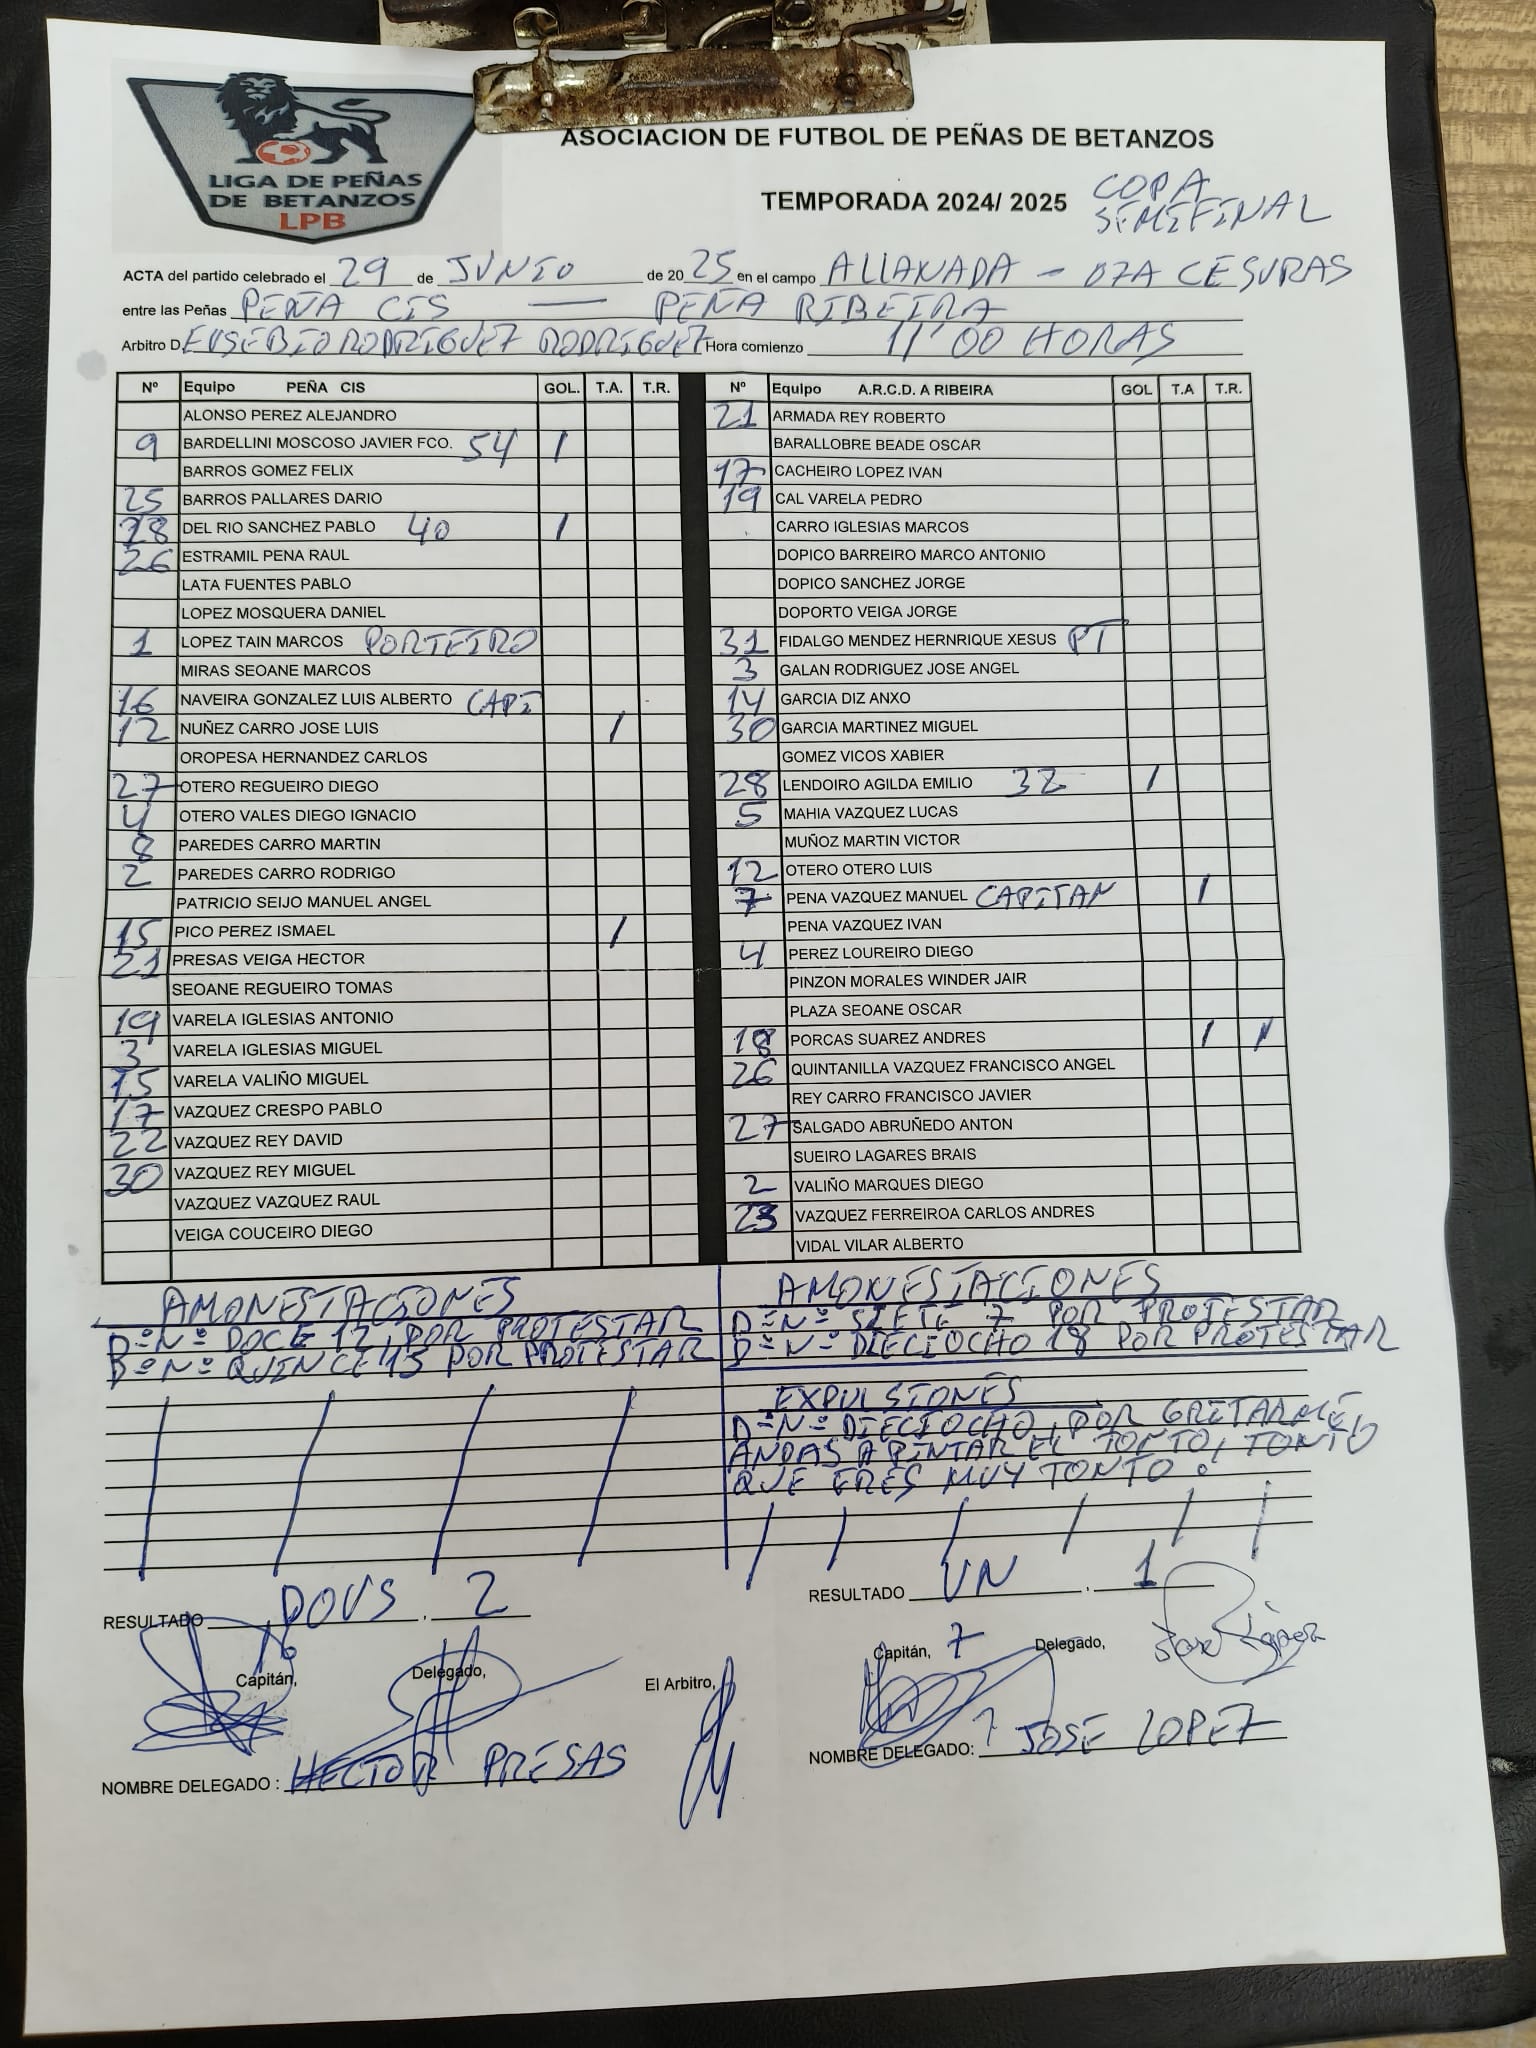 LIGA DE PEÑAS
DE BETANZOS
LPB
ASOCIACION DE FUTBOL DE PEÑAS DE BETANZOS
TEMPORADA 2024/ 2025 COPA
SEMIFINAL
ACTA del partido celebrado el 29 de JUNIO de 2025 en el campo ALLANADA - OZA CESURAS
entre las Peñas PEÑA CIS — PEÑA RIBEIRA
Arbitro D. EUSEBIO RODRIGUEZ RODRIGUEZ Hora comienzo 11'00 HORAS
Nº Equipo PEÑA CIS GOL. T.A. T.R.
ALONSO PEREZ ALEJANDRO
9 BARDELLINI MOSCOSO JAVIER FCO. 54 1
BARROS GOMEZ FELIX
25 BARROS PALLARES DARIO
28 DEL RIO SANCHEZ PABLO 40 1
26 ESTRAMIL PENA RAUL
LATA FUENTES PABLO
LOPEZ MOSQUERA DANIEL
1 LOPEZ TAIN MARCOS PORTEIRO
MIRAS SEOANE MARCOS
16 NAVEIRA GONZALEZ LUIS ALBERTO CAPI
12 NUÑEZ CARRO JOSE LUIS 1
OROPESA HERNANDEZ CARLOS
27 OTERO REGUEIRO DIEGO
4 OTERO VALES DIEGO IGNACIO
8 PAREDES CARRO MARTIN
2 PAREDES CARRO RODRIGO
PATRICIO SEIJO MANUEL ANGEL
15 PICO PEREZ ISMAEL 1
21 PRESAS VEIGA HECTOR
SEOANE REGUEIRO TOMAS
19 VARELA IGLESIAS ANTONIO
3 VARELA IGLESIAS MIGUEL
15 VARELA VALIÑO MIGUEL
17 VAZQUEZ CRESPO PABLO
22 VAZQUEZ REY DAVID
30 VAZQUEZ REY MIGUEL
VAZQUEZ VAZQUEZ RAUL
VEIGA COUCEIRO DIEGO
Nº Equipo A.R.C.D. A RIBEIRA GOL T.A T.R.
21 ARMADA REY ROBERTO
BARALLOBRE BEADE OSCAR
17 CACHEIRO LOPEZ IVAN
19 CAL VARELA PEDRO
CARRO IGLESIAS MARCOS
DOPICO BARREIRO MARCO ANTONIO
DOPICO SANCHEZ JORGE
DOPORTO VEIGA JORGE
31 FIDALGO MENDEZ HERNRIQUE XESUS PT
3 GALAN RODRIGUEZ JOSE ANGEL
14 GARCIA DIZ ANXO
30 GARCIA MARTINEZ MIGUEL
GOMEZ VICOS XABIER
28 LENDOIRO AGILDA EMILIO 32 1
5 MAHIA VAZQUEZ LUCAS
MUÑOZ MARTIN VICTOR
12 OTERO OTERO LUIS
7 PENA VAZQUEZ MANUEL CAPITAN 1
PENA VAZQUEZ IVAN
4 PEREZ LOUREIRO DIEGO
PINZON MORALES WINDER JAIR
PLAZA SEOANE OSCAR
18 PORCAS SUAREZ ANDRES 1 1
26 QUINTANILLA VAZQUEZ FRANCISCO ANGEL
REY CARRO FRANCISCO JAVIER
27 SALGADO ABRUÑEDO ANTON
SUEIRO LAGARES BRAIS
2 VALIÑO MARQUES DIEGO
23 VAZQUEZ FERREIROA CARLOS ANDRES
VIDAL VILAR ALBERTO
AMONESTACIONES
D=Nº DOCE 12, POR PROTESTAR
D=Nº QUINCE 15 POR PROTESTAR
AMONESTACIONES
D=Nº SIETE 7 POR PROTESTAR
D=Nº DIECIOCHO 18 POR PROTESTAR
EXPULSIONES
D=Nº DIECIOCHO, POR GRITARME,
ANDAS A PINTAR EL TONTO, TONTO
QUE ERES MUY TONTO.
RESULTADO DOUS, 2
RESULTADO UN, 1
Capitán, Delegado, El Arbitro,
Capitán, 7 Delegado,
NOMBRE DELEGADO : HECTOR PRESAS
NOMBRE DELEGADO: JOSE LOPEZ